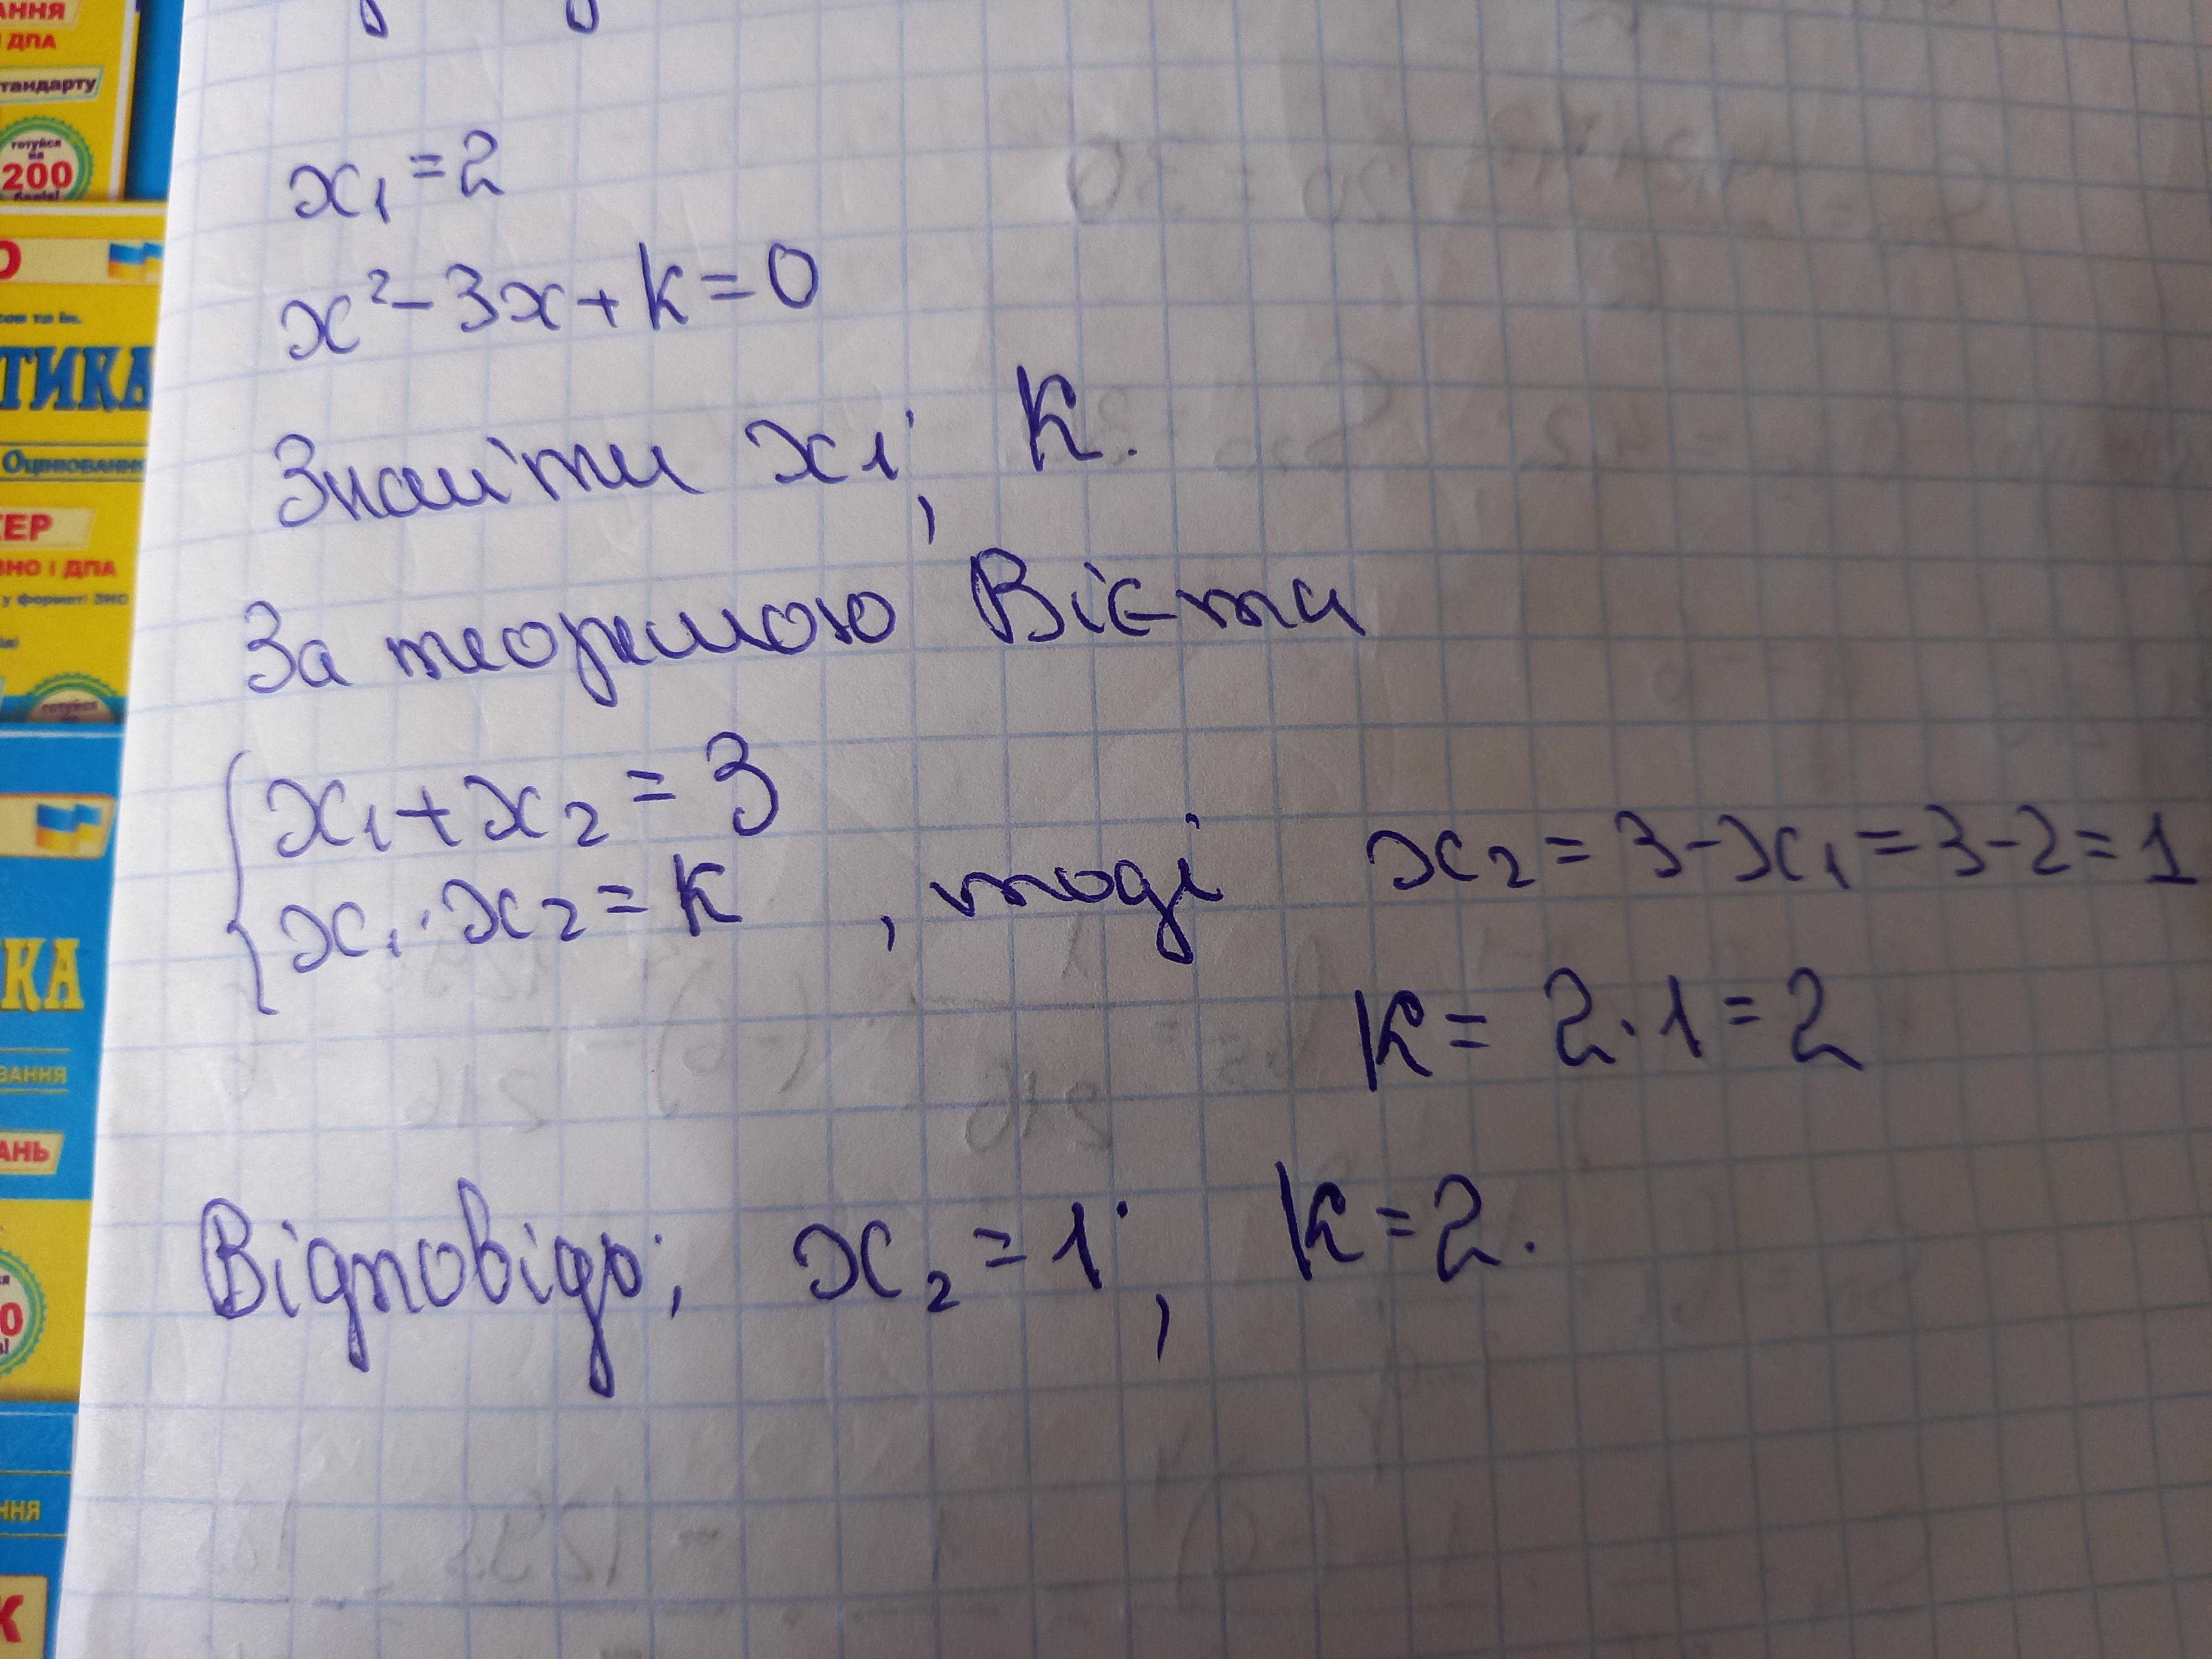 АННЯ
І ДПА
тандарту
готуйся
на
200
ТИКА
Оцінювання
КЕР
ЗНО І ДПА
у форматі ЗНО
КА
ВАННЯ
АНЬ
ННЯ
К
x₁ = 2
x² - 3x + k = 0
Знайти x₁; k.
За теоремою Вієта
x₁ + x₂ = 3
x₁ · x₂ = k , тоді x₂ = 3 - x₁ = 3 - 2 = 1
k = 2 · 1 = 2
Відповідь; x₂ = 1; k = 2.